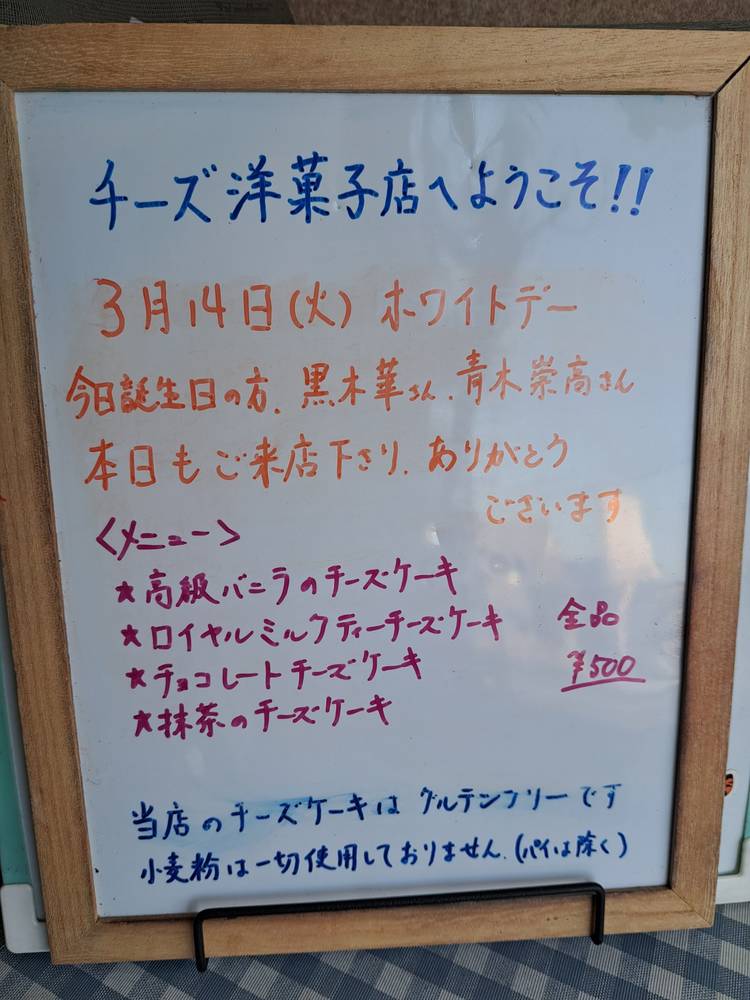 チーズ洋菓子店へようこそ!!
3月14日(火) ホワイトデー
今日誕生日の方、黒木華さん、青木崇高さん
本日もご来店下さり、ありがとう
ございます
<メニュー>
★高級バニラのチーズケーキ
★ロイヤルミルクティーチーズケーキ 全品
★チョコレートチーズケーキ ¥500
★抹茶のチーズケーキ
当店のチーズケーキは グルテンフリーです
小麦粉は一切使用しておりません。(パイは除く)